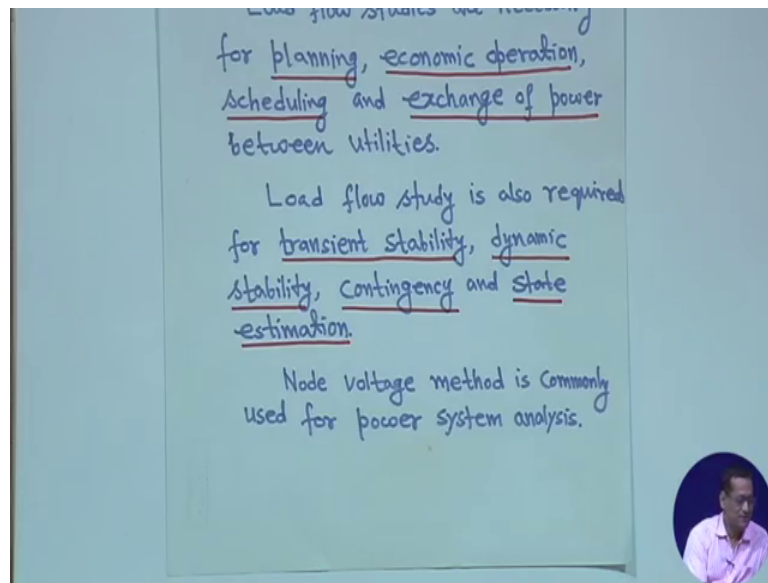 Load flow studies are necessary
for planning, economic operation,
scheduling and exchange of power
between utilities.
Load flow study is also required
for transient stability, dynamic
stability, contingency and state
estimation.
Node voltage method is commonly
used for power system analysis.